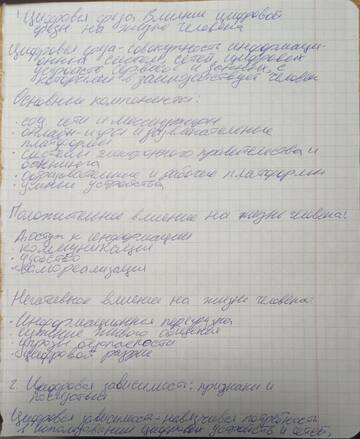 1. Цифровая среда. Влияние цифровой
среды на жизнь человека
Цифровая среда - совокупность информаци-
онных систем, сетей, цифровых
устройств, сервисов и данных, с
которыми взаимодействует человек
Основные компоненты:
· соц. сети и мессенджеры
· онлайн-игры и развлекательные
платформы
· системы электронного правительства и
банкинга
· образовательные и рабочие платформы
· умные устройства
Положительное влияние на жизнь человека:
· Доступ к информации
· коммуникации
· удобство
· самореализация
Негативное влияние на жизнь человека:
· Информационная перегрузка
· живого общения
· угрозы безопасности
· цифровой разрыв
2. Цифровая зависимость: признаки и
последствия
Цифровая зависимость - навязчивая потребность
в использовании цифровых устройств и сетей,